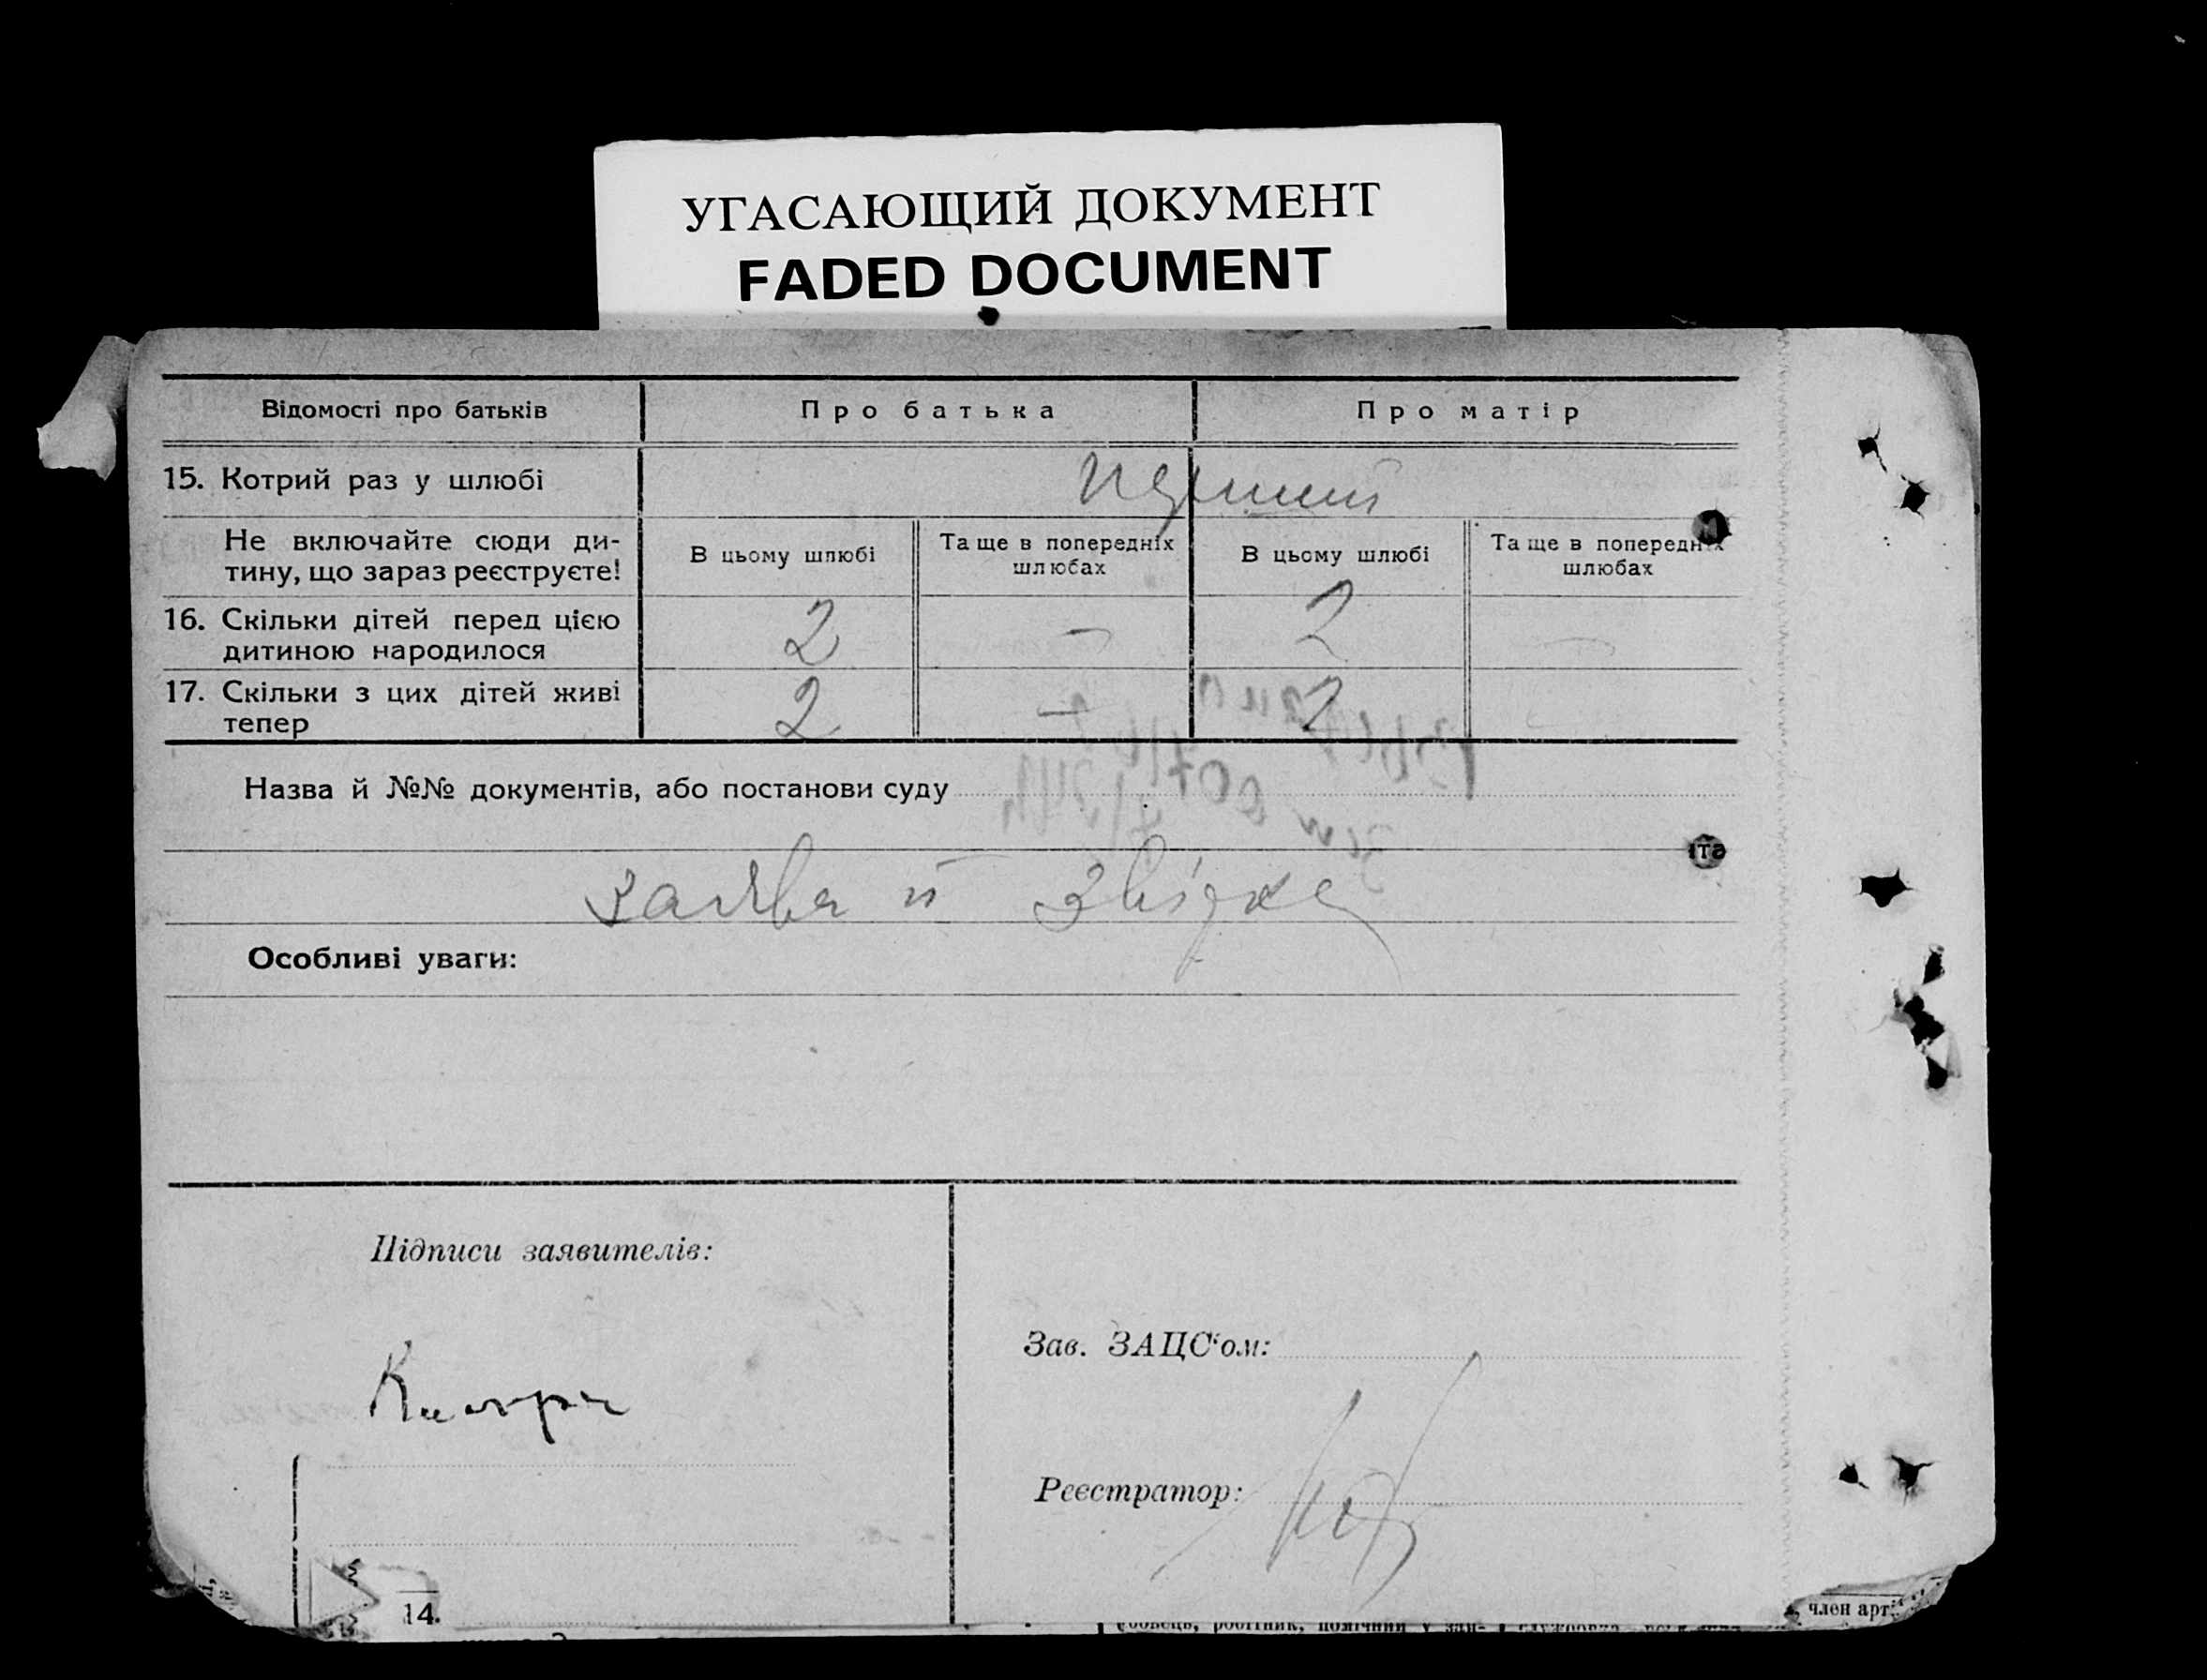 УГАСАЮЩИЙ ДОКУМЕНТ
FADED DOCUMENT
Відомості про батьків
Про батька
Про матір
15. Котрий раз у шлюбі
перший
Не включайте сюди ди-
тину, що зараз реєструєте!
В цьому шлюбі
Та ще в попередніх
шлюбах
В цьому шлюбі
Та ще в попередніх
шлюбах
16. Скільки дітей перед цією
дитиною народилося
2
—
2
—
17. Скільки з цих дітей живі
тепер
2
—
2
Назва й №№ документів, або постанови суду
заява й звідка
Особливі уваги:
Підписи заявителів:
Зав. ЗАЦС'ом:
Реєстратор:
14.
член арт